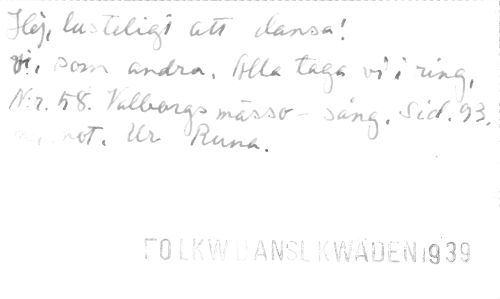 Hej, lusteligt att dansa!
vi, som andra. Alla taga vi i ring,
N:r. 58. Valborgsmässo-sång. Sid. 93.
not. Ur Runa.
1939